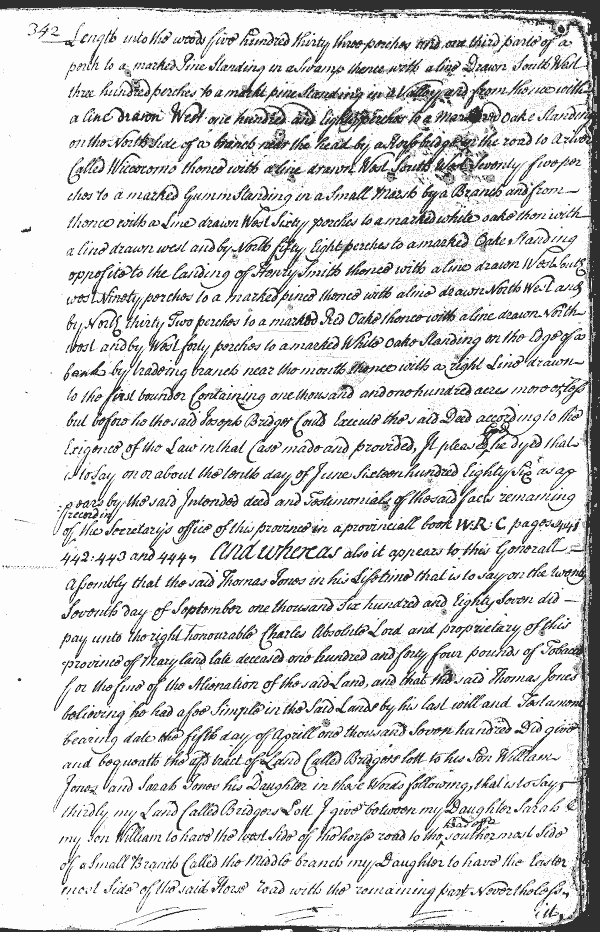 342
Length into the woods five hundred thirty three perches and one third parte of a
perch to a marked Pine Standing in a Swamp thence with a line Drawn South West
three hundred perches to a markt pine Standing in a Valley and from thence with
a line drawn West one hundred and Eighty perches to a Marked Oake Standing
on the North Side of a branch near the head by a Horsbridge in the road to a
Called Wiccocomo thence with a line drawn West South West Seventy five per
ches to a marked Gumm Standing in a Small Marsh by a Branch and from
thence with a Line drawn West Sixty perches to a marked white oake then with
a line drawn west and by North fifty Eight perches to a marked Oake Standing
opposite to the Landing of Henry Smith thence with a line drawn West South
west Ninety perches to a marked pine thence with a line drawn North West and
by North thirty Two perches to a marked Red Oake thence with a line drawn North
west and by West forty perches to a marked White Oake Standing on the Edge of a
bank by trading branch near the mouth thence with a right Line drawn
to the first bounder Containing one thousand and one hundred acres more or less
but before he the said Joseph Bridger Could Execute the said Deed according to the
Exigence of the Law in that Case made and provided, It pleasd God he dyed that
is to Say on or about the tenth day of June Sixteen hundred Eighty Six as ap
pears by the said Intended deed and Testimonials of the said fact remaining
record in
of the Secretary's office of this province in a provinciall book W:R:C pages 441
442:443 and 444, And whereas also it appears to this Generall
Assembly that the said Thomas Jones in his Lifetime that is to say on the twenty
Seventh day of September one thousand Six hundred and Eighty Seven did
pay unto the right honourable Charles Absolute Lord and proprietary of this
province of Maryland late deceased one hundred and forty four pounds of Tobacco
for the fine of the Alienation of the said Land, and that the said Thomas Jones
believing he had a fee Simple in the Said Lands by his last will and Testament
bearing date the fifth day of Aprill one thousand Seven hundred Did give
and bequeath the afd tract of Land Called Bridgers lott to his Son William
Jones and Sarah Jones his Daughter in these Words following, that is to Say,
thirdly my Land Called Bridgers Lott I give between my Daughter Sarah &
my Son William to have the west Side of the horse road to the southermost Side
of a Small Branch Called the Middle branch my Daughter to have the Easter
most Side of the said Horse road with the remaining part Nevertheless,
it